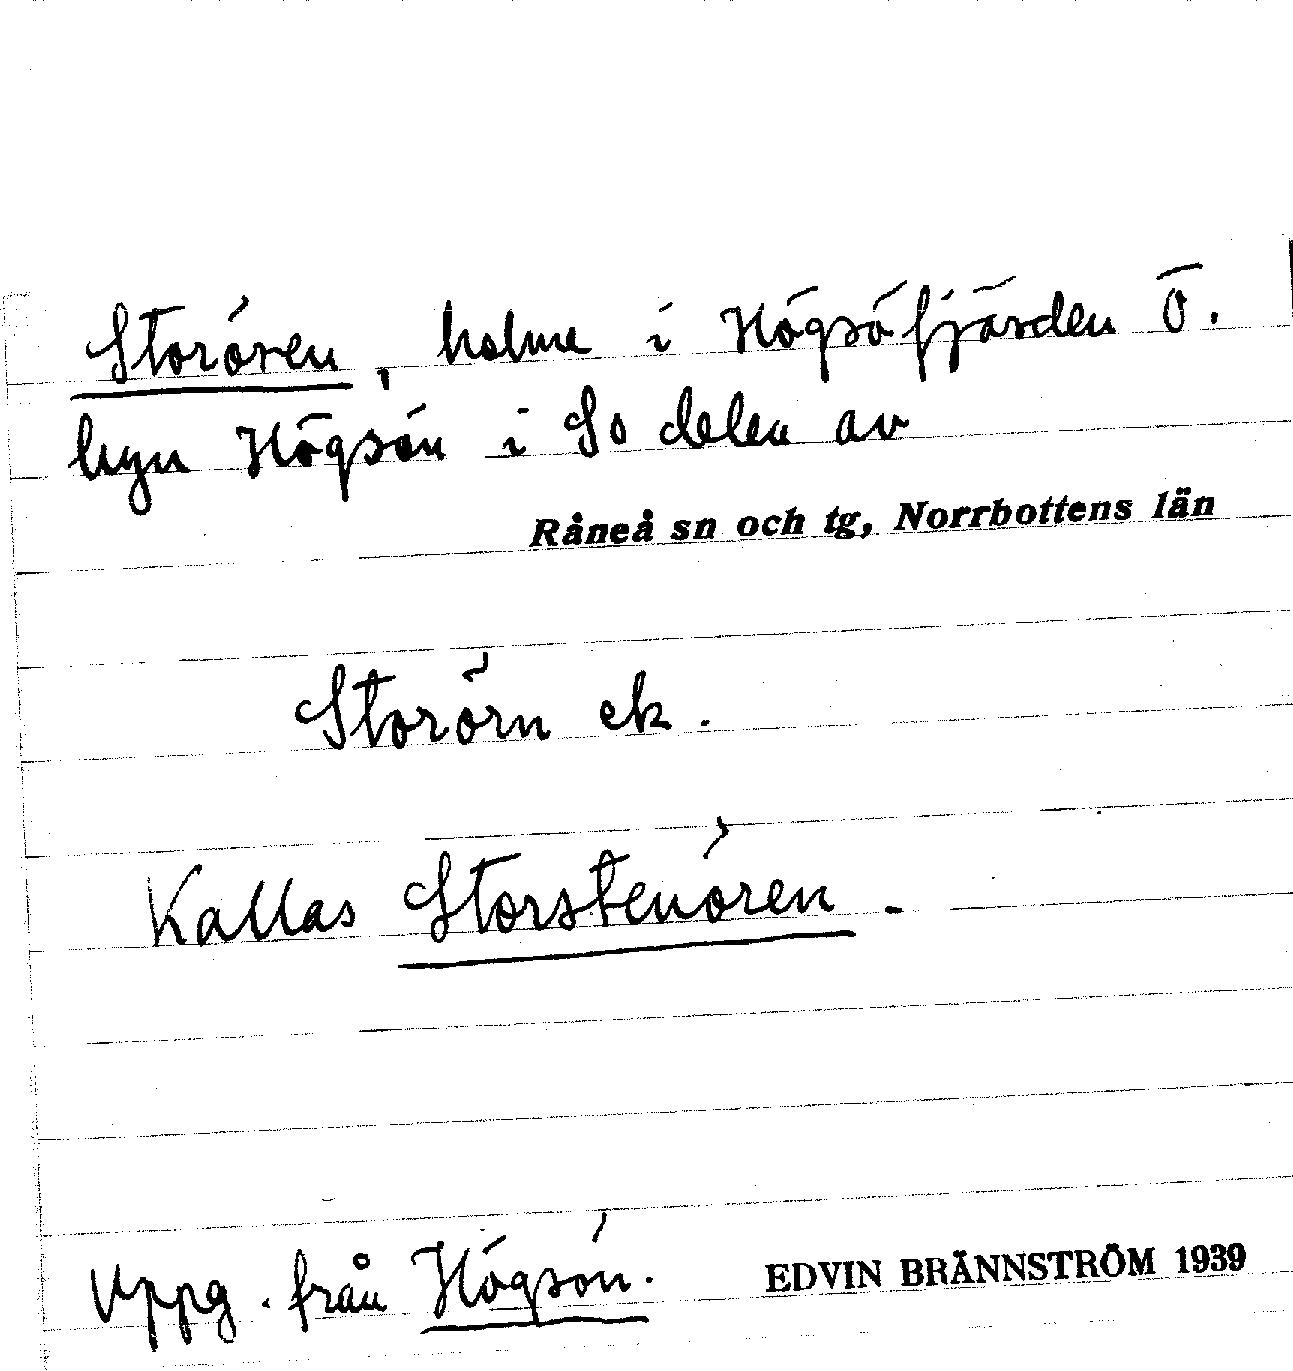 Storören, holme i Högsöfjärden Ö.
byn Högsön i So delen av
Råneå sn och tg, Norrbottens län
Storörn ek.
Kallas Storstenören.
Uppg. från Högsön. EDVIN BRÄNNSTRÖM 1939